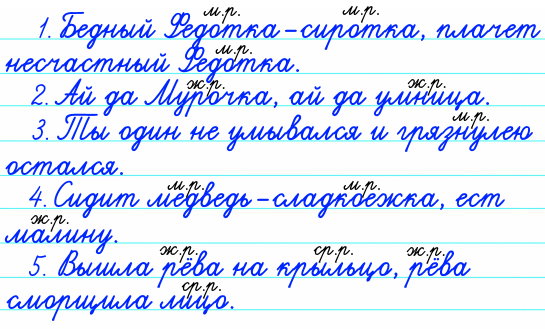 м.р. м.р.
1. Бедный Федотка – сиротка, плачет
м.р.
несчастный Федотка.
ж.р. ж.р.
2. Ай да Мурочка, ай да умница.
м.р.
3. Ты один не умывался и грязнулею
остался.
м.р. м.р.
4. Сидит медведь – сладкоежка, ест
ж.р.
малину.
ж.р. ср.р. ж.р.
5. Вышла рёва на крыльцо, рёва
ср.р.
сморщила лицо.